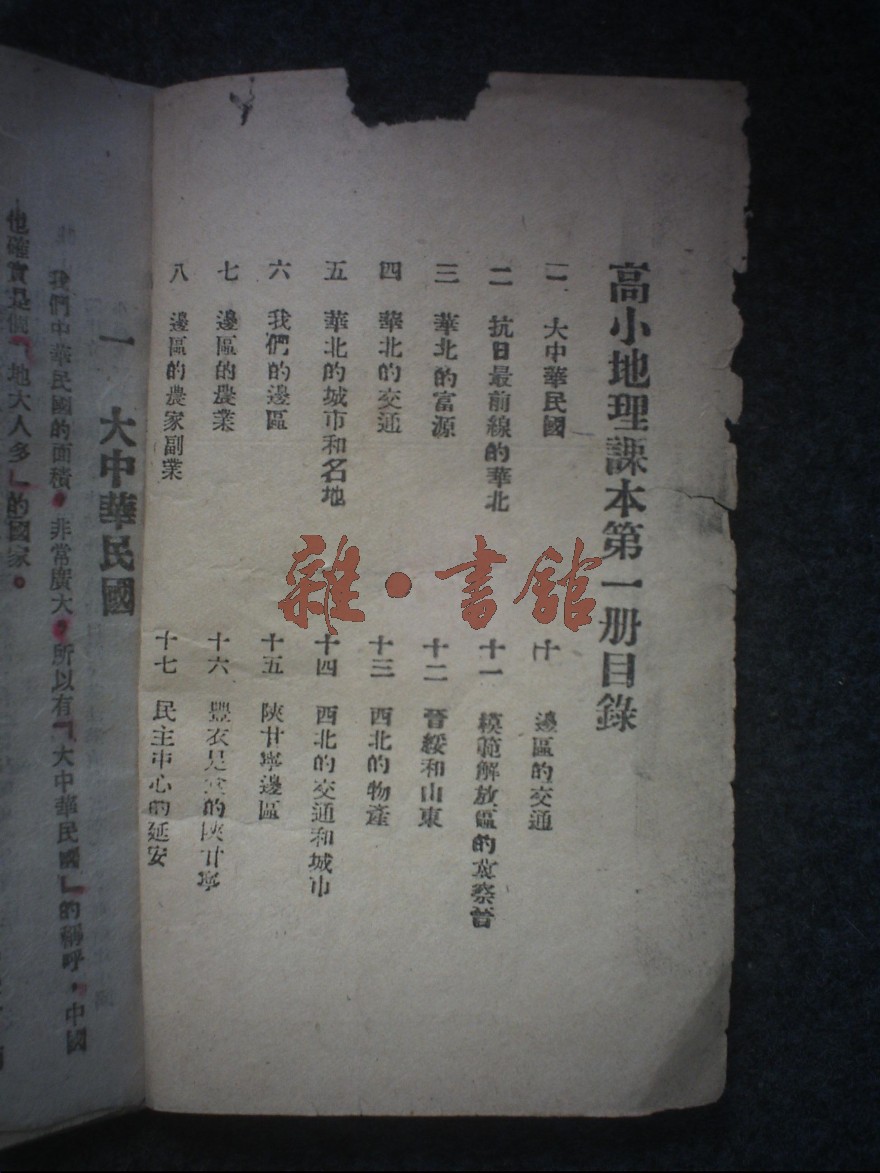 高小地理課本第一册目錄
一 大中華民國
二 抗日最前線的華北
三 華北的富源
四 華北的交通
五 華北的城市和名地
六 我們的邊區
七 邊區的農業
八 邊區的農家副業
十 邊區的交通
十一 模範解放區的冀察晉
十二 晉綏和山東
十三 西北的物產
十四 西北的交通和城市
十五 陝甘寧邊區
十六 豐衣足食的陝甘寧
十七 民主中心的延安
雜·書館
一 大中華民國
我們中華民國的面積，非常廣大，所以有「大中華民國」的稱呼，中國
也確實是個「地大人多」的國家。